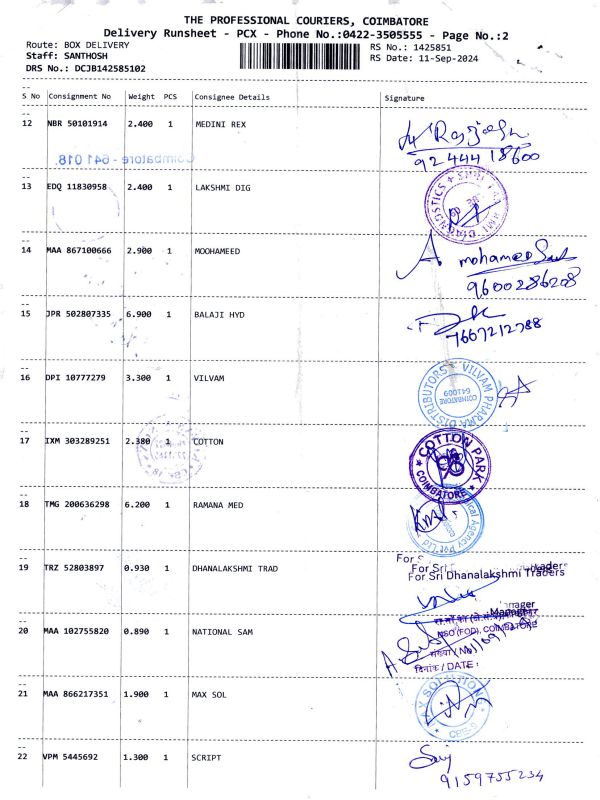 THE PROFESSIONAL COURIERS, COIMBATORE
Delivery Runsheet - PCX - Phone No.:0422-3505555 - Page No.:2
Route: BOX DELIVERY
Staff: SANTHOSH
DRS No.: DCJB142585102
RS No.: 1425851
RS Date: 11-Sep-2024
S No Consignment No Weight PCS Consignee Details Signature
12 NBR 50101914 2.400 1 MEDINI REX
92444 18600
Coimbatore - 641 018.
13 EDQ 11830958 2.400 1 LAKSHMI DIG
14 MAA 867100666 2.900 1 MOOHAMEED
mohamed
9600286208
15 JPR 502807335 6.900 1 BALAJI HYD
7667212788
16 DPI 10777279 3.300 1 VILVAM
VILVAM PHARMA DISTRIBUTORS
COIMBATORE
641009
17 IXM 303289251 2.380 1 COTTON
COTTON PARK
COIMBATORE
18 TMG 200636298 6.200 1 RAMANA MED
Agency Pvt Ltd
19 TRZ 52803897 0.930 1 DHANALAKSHMI TRAD
For Sri Dhanalakshmi Traders
Manager
20 MAA 102755820 0.890 1 NATIONAL SAM
NSO (FOD), COIMBATORE
दिनांक / DATE :
21 MAA 866217351 1.900 1 MAX SOL
22 VPM 5445692 1.300 1 SCRIPT
9159755234